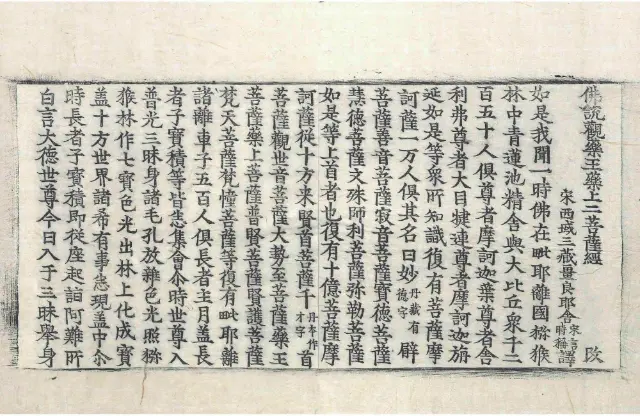 佛說觀藥王藥上二菩薩經 改
宋西域三藏畺良耶舍宋言時稱譯
如是我聞一時佛在毗耶離國猕猴
林中青蓮池精舍與大比丘衆千二
百五十人俱尊者摩訶迦葉尊者舍
利弗尊者大目揵連尊者摩訶迦旃
延如是等衆所知識復有菩薩摩
訶薩一万人俱其名曰妙丹藏有德字臂
菩薩善音菩薩寂音菩薩寶德菩薩
慧德菩薩文殊師利菩薩弥勒菩薩
如是等上首者也復有十億菩薩摩
訶薩從十方来賢首菩薩千丹本作才字首
菩薩觀世音菩薩大勢至菩薩藥王
菩薩藥上菩薩普賢菩薩賢護菩薩
梵天菩薩梵幢菩薩等復有毗耶離
諸離車子五百人俱長者主月盖長
者子寶積等皆悉集會尒時世尊入
普光三昧身諸毛孔放雜色光照猕
猴林作七寶色光出林上化成寶
盖十方世界諸希有事悉現盖中尒
時長者子寶積即從座起詣阿難所
白言大德世尊今日入于三昧舉身